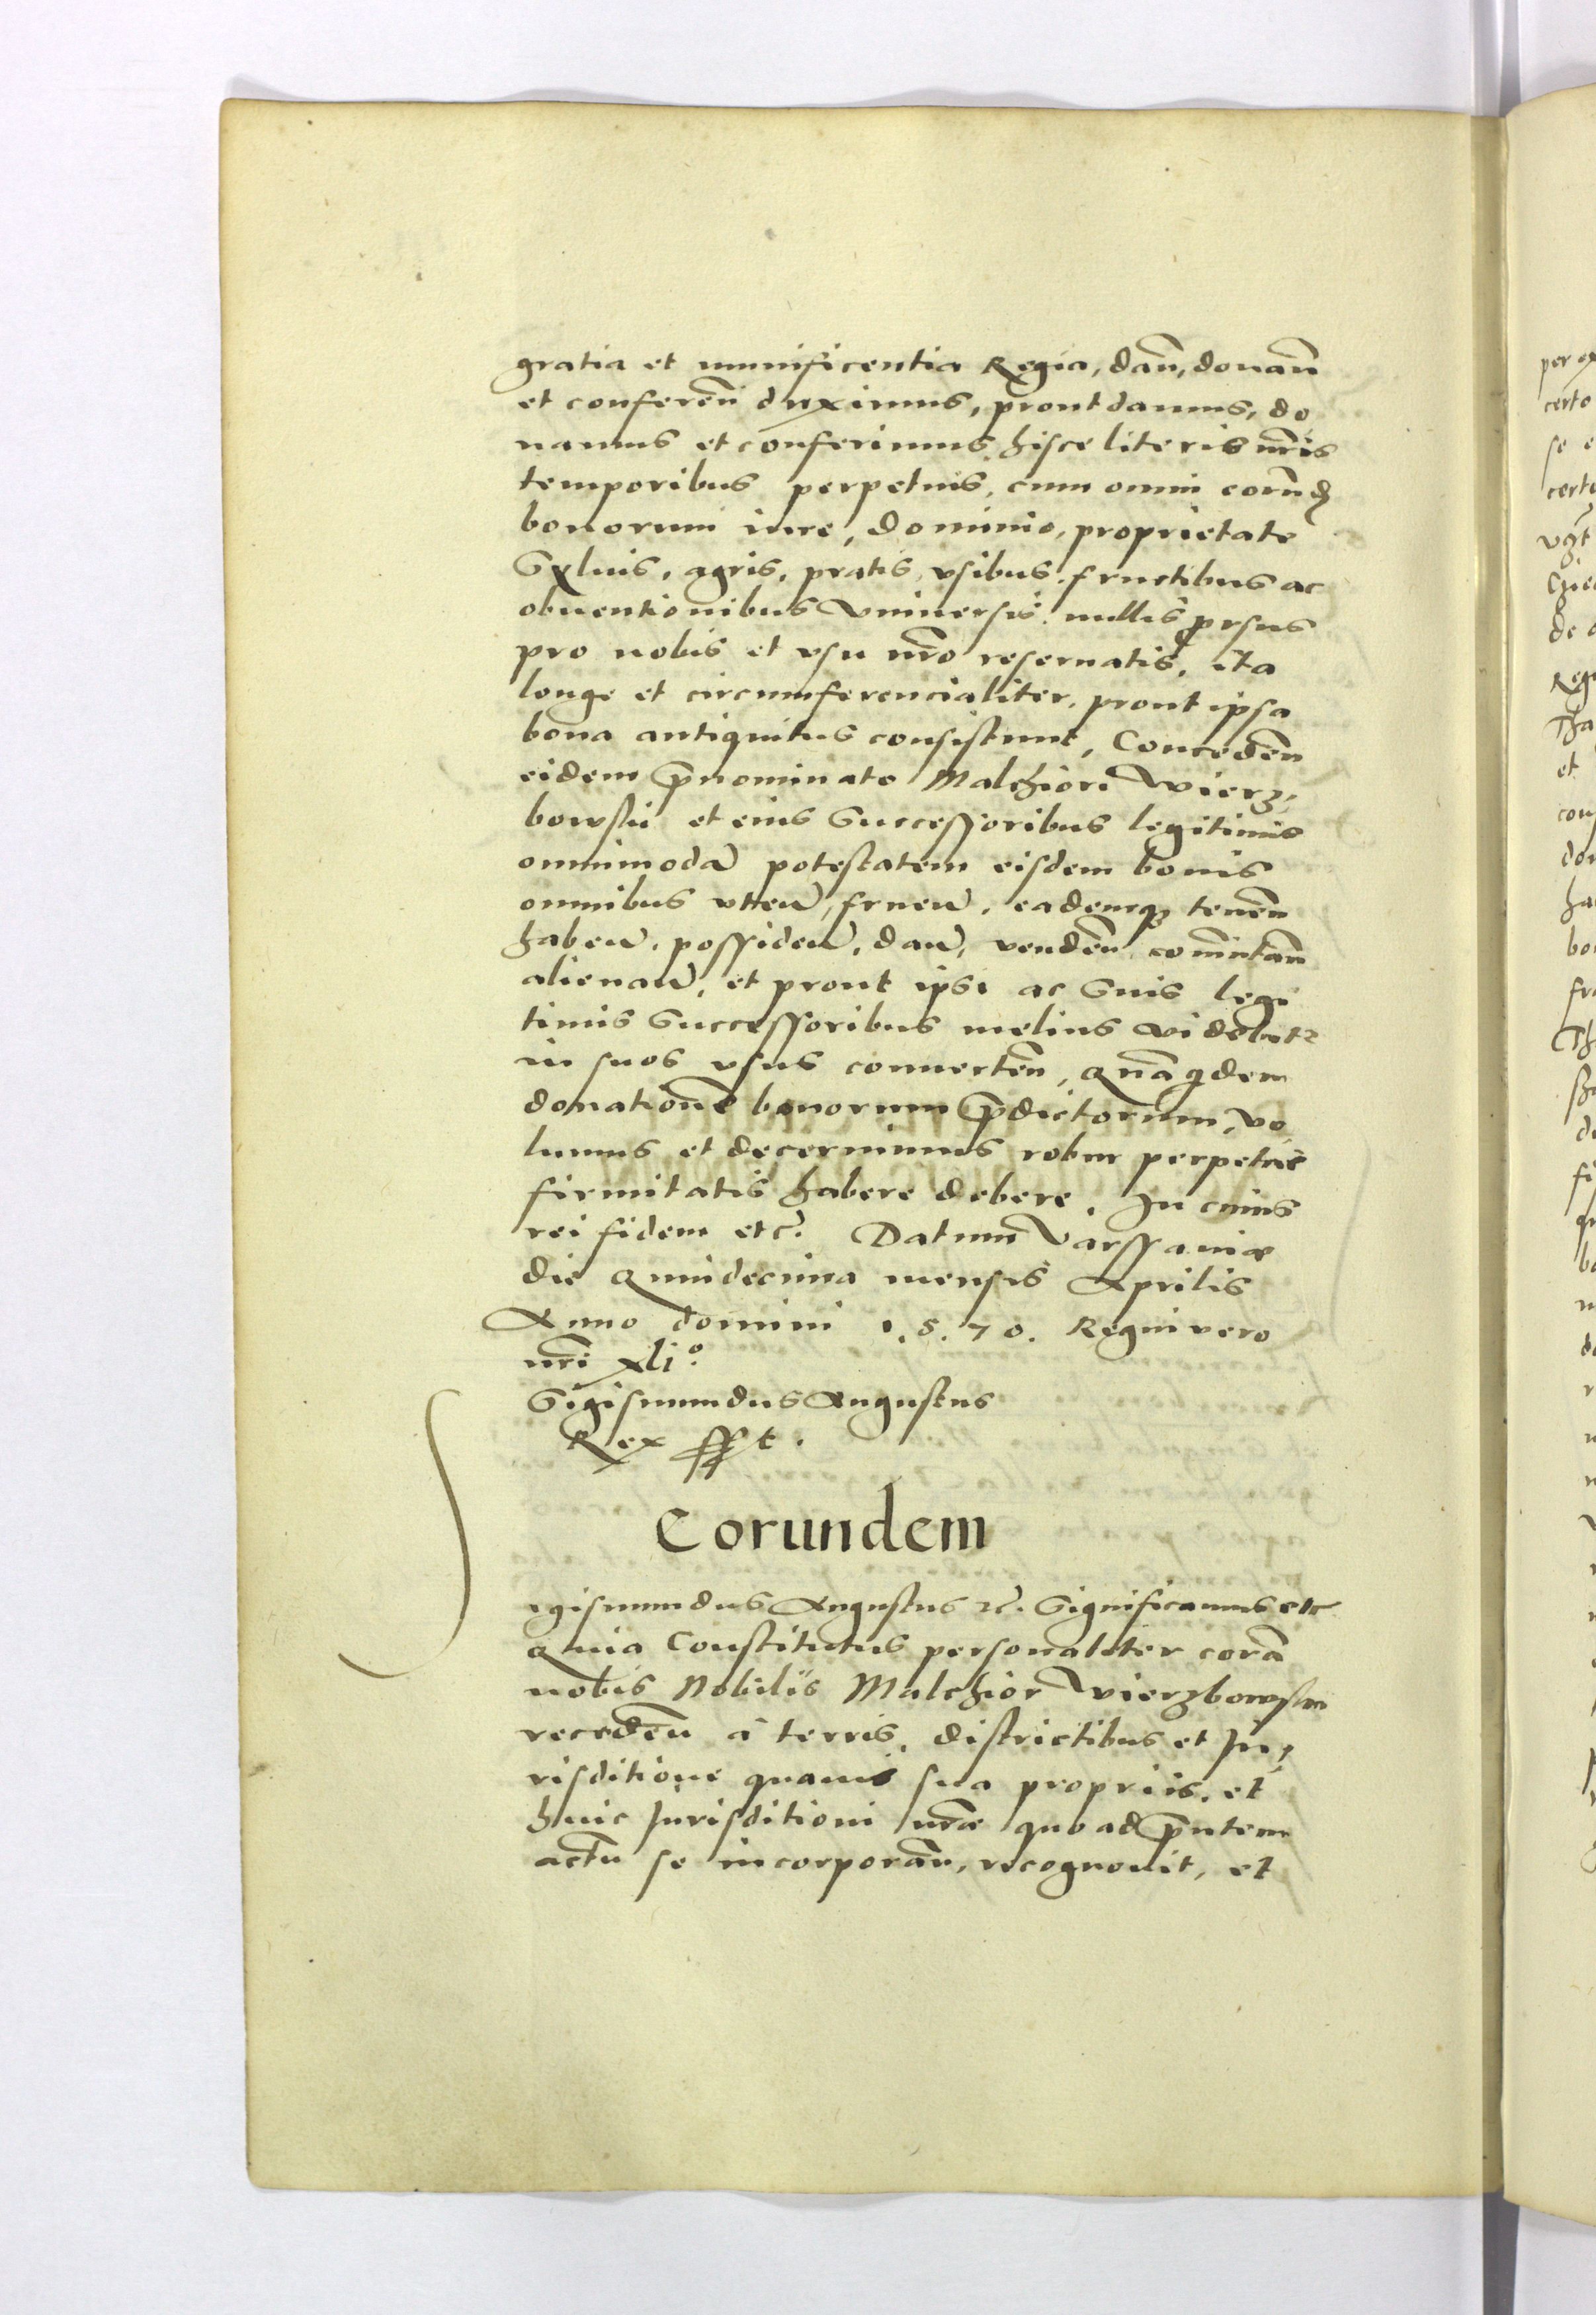 gratia et munificentia Regia, dan̄, donan̄
et conferen̄ duximus, prout damus, do
namus et conferimus hisce literis nr̄is
temporibus perpetuis, cum omni eorund
bonorum iure, dominio, proprietate
Syluis, agris, pratis, vsibus, fructibus ac
obuentionibus vniuersis, nullis prsus
pro nobis et vsu nr̄o reseruatis, ita
longe et circumferencialiter, prout ipsa
bona antiquitus consistunt, Conceden̄
eidem p̄nominato Malchiori Wierz,
bowski et eius Successoribus legitimis
omnimodā potestatem eisdem bonis
omnibus vten̄, fruen̄, eademq; tenen̄
haben̄, possiden̄, dan̄, venden̄, com̄utan̄
alienan̄, et prout ipsi ac Suis legi
timis Successoribus melius videbitr
in suos vsus conuerten̄, quā qdem
donationē bonorum p̄dictorum, vo
lumus et decernimus robur perpetuę
firmitatis habere debere. In cuius
rei fidem etc̄. Datum Varssauiæ
die quindecima mensis Aprilis
Anno domini 1.5.70. Regni vero
nr̄i xliº.
Sigismundus Augustus
Rex sspt.
Eorundem
igismundus Augustus ꝛc̄. Significamus etc
quia Constitutus personaliter corā
nobis Nobilis Malchior Wierzbowski
receden̄ à terris, districtibus et Ju,
risditione quauis sua propriis, et
huic Jurisditioni nr̄æ quo ad p̄ntem
actū se incorporan̄, recognouit, et
per
certo
se
certe
vgt
de
Reg
Tha
et
con
don
ha
bo